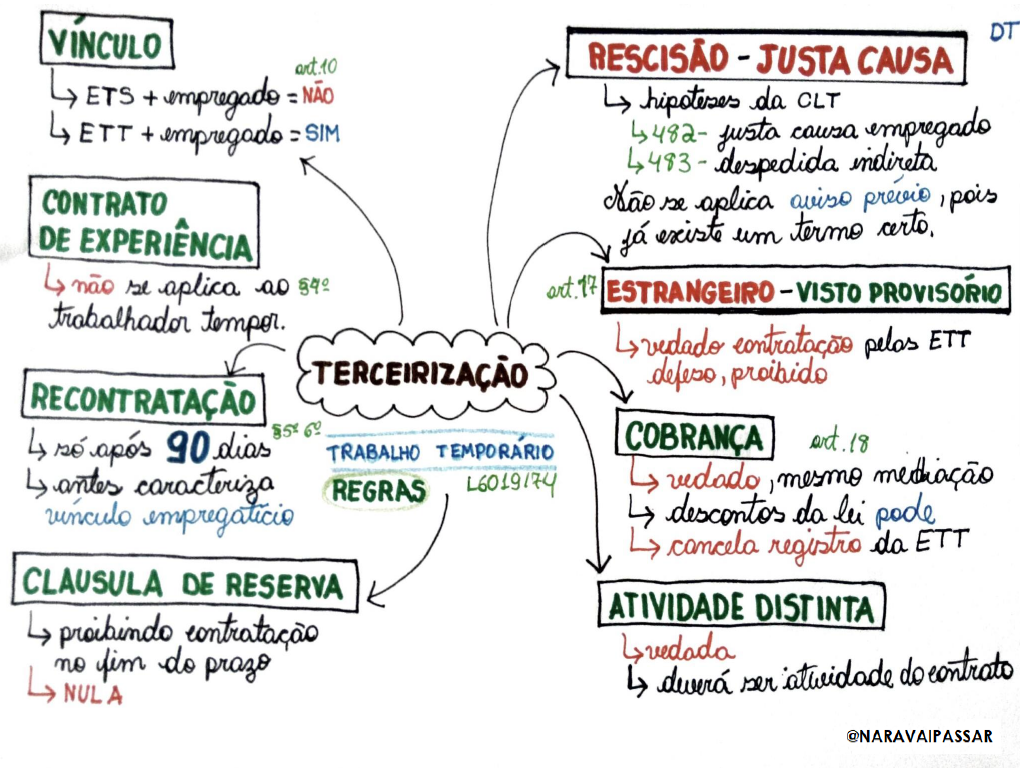 DT
VÍNCULO
art.10
↳ ETS + empregado = NÃO
↳ ETT + empregado = SIM
CONTRATO
DE EXPERIÊNCIA
↳ não se aplica ao §4º
trabalhador tempor.
RECONTRATAÇÃO
§5º 6º
↳ só após 90 dias
↳ antes caracteriza
vínculo empregatício
CLAUSULA DE RESERVA
↳ proibindo contratação
no fim do prazo
↳ NULA
TERCEIRIZAÇÃO
TRABALHO TEMPORÁRIO
REGRAS L6019/74
RESCISÃO - JUSTA CAUSA
↳ hipoteses da CLT
↳ 482 - justa causa empregado
↳ 483 - despedida indireta
Não se aplica aviso prévio, pois
já existe um termo certo.
art.17 ESTRANGEIRO - VISTO PROVISÓRIO
↳ vedado contratação pelas ETT
defeso, proibido
COBRANÇA art.18
↳ vedado, mesmo mediação
↳ descontos da lei pode
↳ cancela registro da ETT
ATIVIDADE DISTINTA
↳ vedada
↳ deverá ser atividade do contrato
@NARAVAIPASSAR